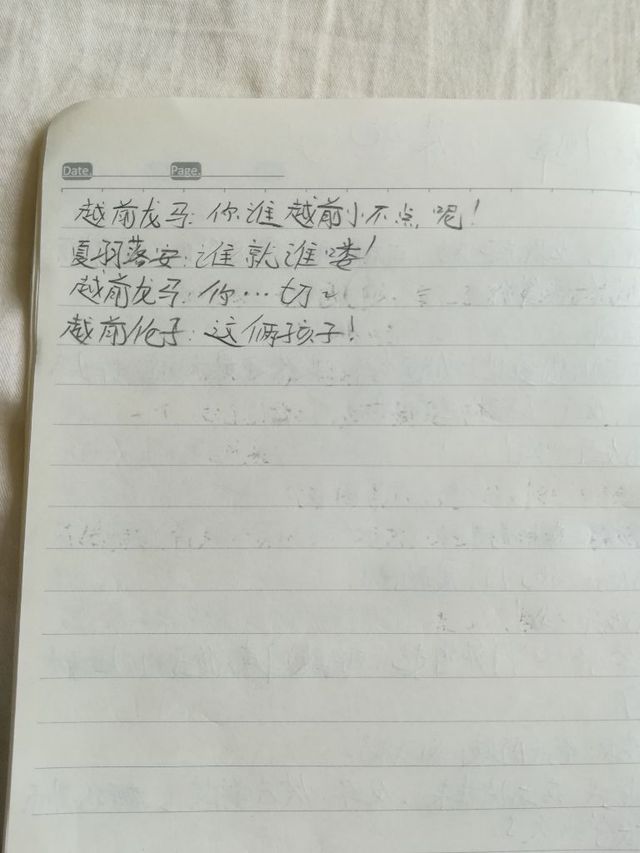 Date. Page.
越前龙马: 你谁越前小不点呢!
夏羽落安: 谁就谁喽!
越前龙马: 你…切~
越前伦子: 这俩孩子!